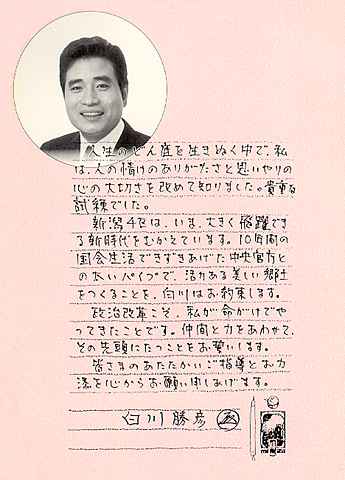 人生のどん底を生きぬく中で、私
は、人の情けのありがたさと思いやりの
心の大切さを改めて知りました。貴重な
試練でした。
新潟4区は、いま、大きく飛躍でき
る新時代をむかえています。10年間の
国会生活できずきあげた中央官庁と
の太いパイプで、活力ある美しい郷土
をつくることを、白川はお約束します。
政治改革こそ、私が命がけでや
ってきたことです。仲間と力をあわせて、
その先頭にたつことをお誓いします。
皆さまのあたたかいご指導とお力
添を心からお願い申しあげます。
白川勝彦